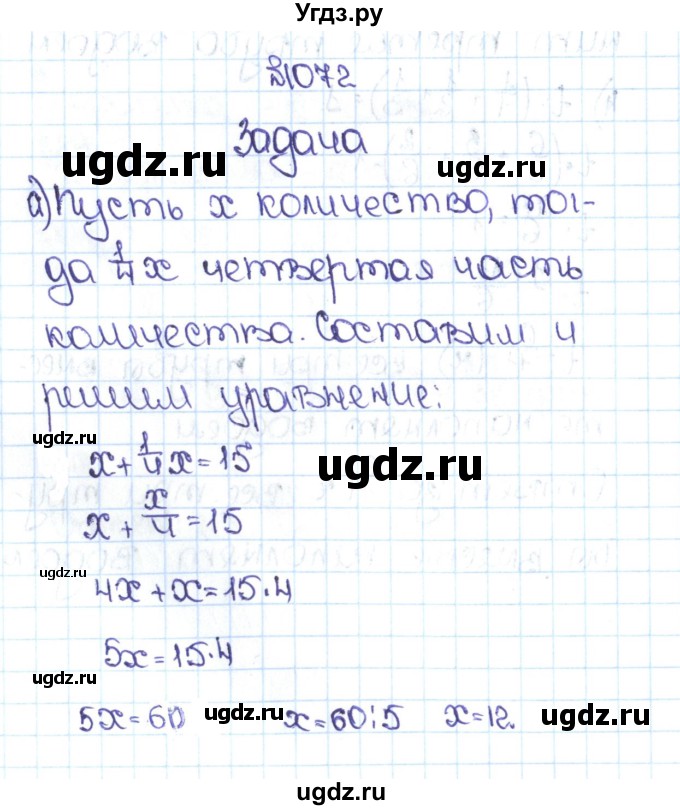 Угдз.ру
№1072
Задача
ugdz.ru
ugdz.ru
а) Пусть x количество, тог-
да 1/4 x четвертая часть
количества. Составим и
решим уравнение:
ugdz.ru
x + 1/4 x = 15
ugdz.ru
x + x/4 = 15
ugdz.ru
4x + x = 15·4
5x = 15·4
ugdz.ru
5x = 60 ugdz.ru x = 60:5 x = 12. ugdz.ru
ugdz.ru